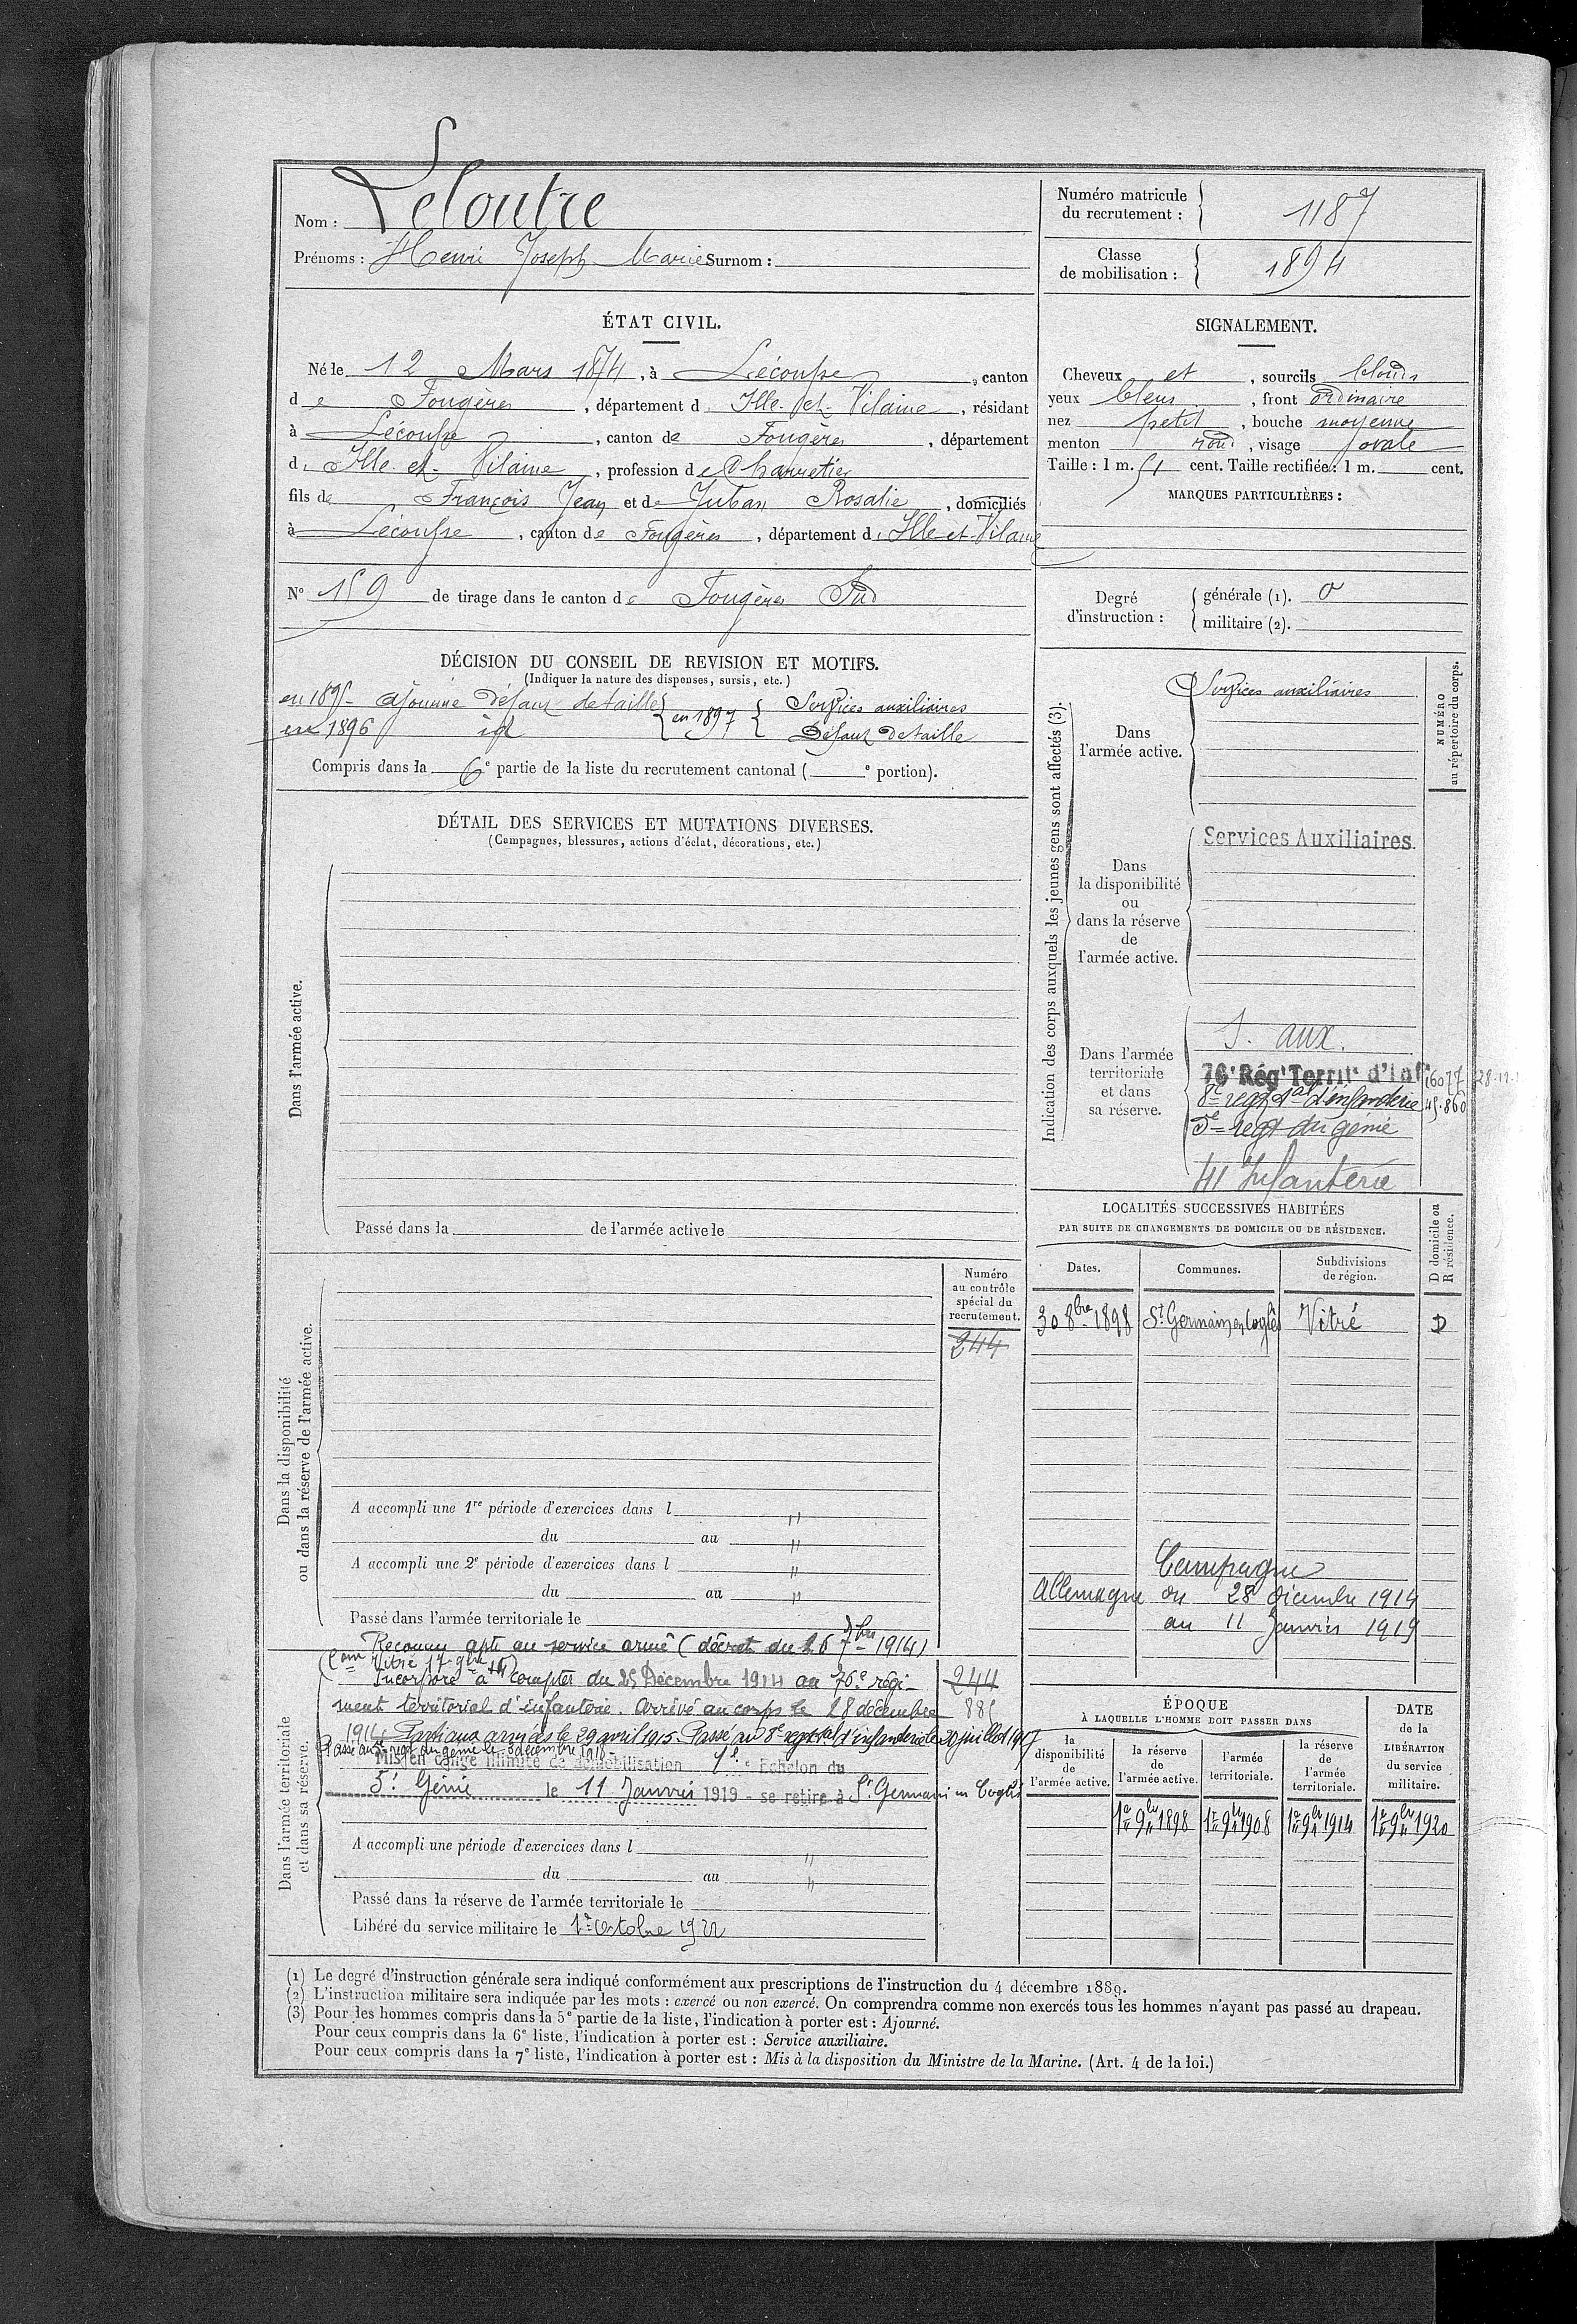 Nom : Leloutre
Prénoms : Henri Joseph Marie Surnom :
Numéro matricule du recrutement : 1187
Classe de mobilisation : 1894
ÉTAT CIVIL.
Né le 12 Mars 1874, à Lécousse, canton
de Fougères, département d. Ille-et-Vilaine, résidant
à Lécousse, canton de Fougères, département
d. Ille-et-Vilaine, profession de Charretier
fils de François Jean et de Juban Rosalie, domiciliés
à Lécousse, canton de Fougères, département d. Ille-et-Vilaine
N° 159 de tirage dans le canton de Fougères Sud
SIGNALEMENT.
Cheveux et, sourcils blonds
yeux bleus, front ordinaire
nez petit, bouche moyenne
menton rond, visage ovale
Taille : 1 m. 51 cent. Taille rectifiée : 1 m. cent.
MARQUES PARTICULIÈRES :
Degré d'instruction : générale (1). 0
militaire (2).
DÉCISION DU CONSEIL DE REVISION ET MOTIFS.
(Indiquer la nature des dispenses, sursis, etc.)
en 1895 ajourné défaut de taille
en 1896 id
en 1897 Services auxiliaires
Défaut de taille
Compris dans la 6e partie de la liste du recrutement cantonal ( e portion).
DÉTAIL DES SERVICES ET MUTATIONS DIVERSES.
(Campagnes, blessures, actions d'éclat, décorations, etc.)
Dans l'armée active.
Passé dans la de l'armée active le
Indication des corps auxquels les jeunes gens sont affectés (3).
NUMÉRO au répertoire du corps.
Dans l'armée active.
Services auxiliaires
Dans la disponibilité ou dans la réserve de l'armée active.
Services Auxiliaires
Dans l'armée territoriale et dans sa réserve.
S. aux.
76e Régt Territ. d'Inf 16077
8e regt tal d'infanterie
5e regt du génie
41 Infanterie
LOCALITÉS SUCCESSIVES HABITÉES
PAR SUITE DE CHANGEMENTS DE DOMICILE OU DE RÉSIDENCE.
Dates. Communes. Subdivisions de région. D domicile ou R résidence.
30 8bre 1898 St Germain en Coglès Vitré D
Campagne
Allemagne du 28 décembre 1914
au 11 Janvier 1919
Dans la disponibilité ou dans la réserve de l'armée active.
Numéro au contrôle spécial du recrutement.
244
A accompli une 1re période d'exercices dans l "
du au "
A accompli une 2e période d'exercices dans l "
du au "
Passé dans l'armée territoriale le
Dans l'armée territoriale et dans sa réserve.
Reconnu apte au service armé (décret du 26 7bre 1914)
(Com Vitré 17 9bre 14)
Incorporé à compter du 25 Décembre 1914 au 76e régi-
244
ment territorial d'infanterie. Arrivé au corps le 28 décembre
885
1914. Parti aux armées le 29 avril 1915. Passé au 8e regt tal d'infanterie le 20 juillet 1917
Passé au 5e regt du génie le 3 décembre 1918
Mis en congé illimité de démobilisation 1e Echelon du
5e Génie le 11 Janvier 1919 - se retire à St Germain en Coglès
A accompli une période d'exercices dans l "
du au "
Passé dans la réserve de l'armée territoriale le
Libéré du service militaire le 1er Octobre 1921
ÉPOQUE
À LAQUELLE L'HOMME DOIT PASSER DANS
la disponibilité de l'armée active.
la réserve de l'armée active.
l'armée territoriale.
la réserve de l'armée territoriale.
DATE de la LIBÉRATION du service militaire.
1er 9bre 1898 1er 9bre 1908 1er 9bre 1914 1er 9bre 1920
(1) Le degré d'instruction générale sera indiqué conformément aux prescriptions de l'instruction du 4 décembre 1889.
(2) L'instruction militaire sera indiquée par les mots : exercé ou non exercé. On comprendra comme non exercés tous les hommes n'ayant pas passé au drapeau.
(3) Pour les hommes compris dans la 5e partie de la liste, l'indication à porter est : Ajourné.
Pour ceux compris dans la 6e liste, l'indication à porter est : Service auxiliaire.
Pour ceux compris dans la 7e liste, l'indication à porter est : Mis à la disposition du Ministre de la Marine. (Art. 4 de la loi.)